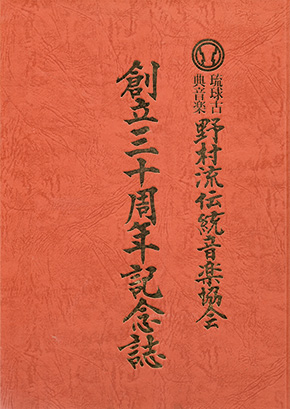 琉球古典音楽
野村流伝統音楽協会
創立三十周年記念誌